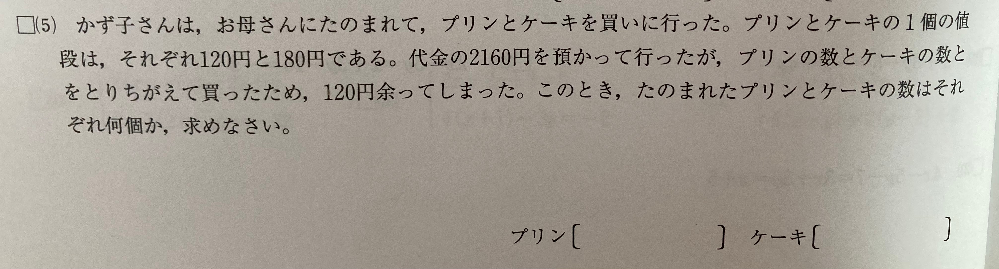 □(5) かず子さんは，お母さんにたのまれて，プリンとケーキを買いに行った。プリンとケーキの1個の値
段は，それぞれ120円と180円である。代金の2160円を預かって行ったが，プリンの数とケーキの数と
をとりちがえて買ったため，120円余ってしまった。このとき，たのまれたプリンとケーキの数はそれ
ぞれ何個か，求めなさい。
プリン〔　　　　　〕 ケーキ〔　　　　　〕